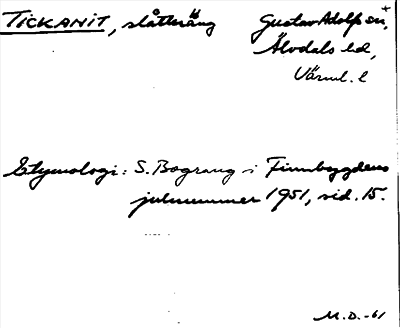 TICKANIT, slåtteräng Gustav Adolfs sn,
Älvdals hd,
Värml. l
Etymologi: S. Bograng i Finnbygdens
julnummer 1951, sid. 15.
M.D.-61